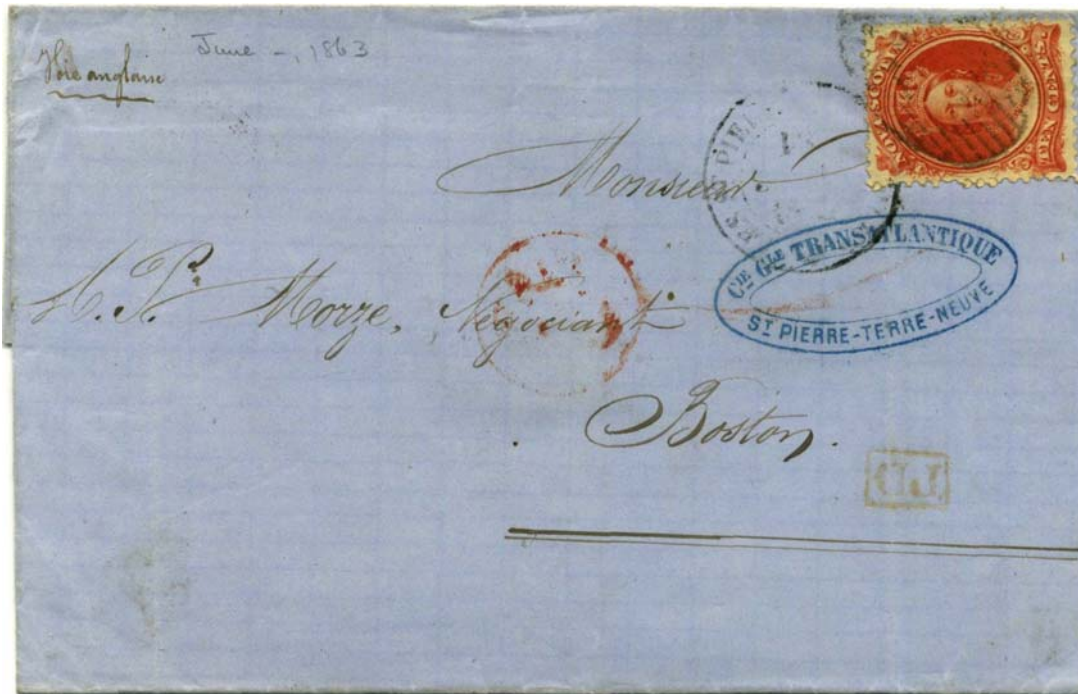 Voie anglaise
June -, 1863
NOVA SCOTIA
TEN CENTS.
PIE
Monsieur
Morze, Négociant
Boston.
CIE GLE TRANSATLANTIQUE
ST PIERRE-TERRE-NEUVE